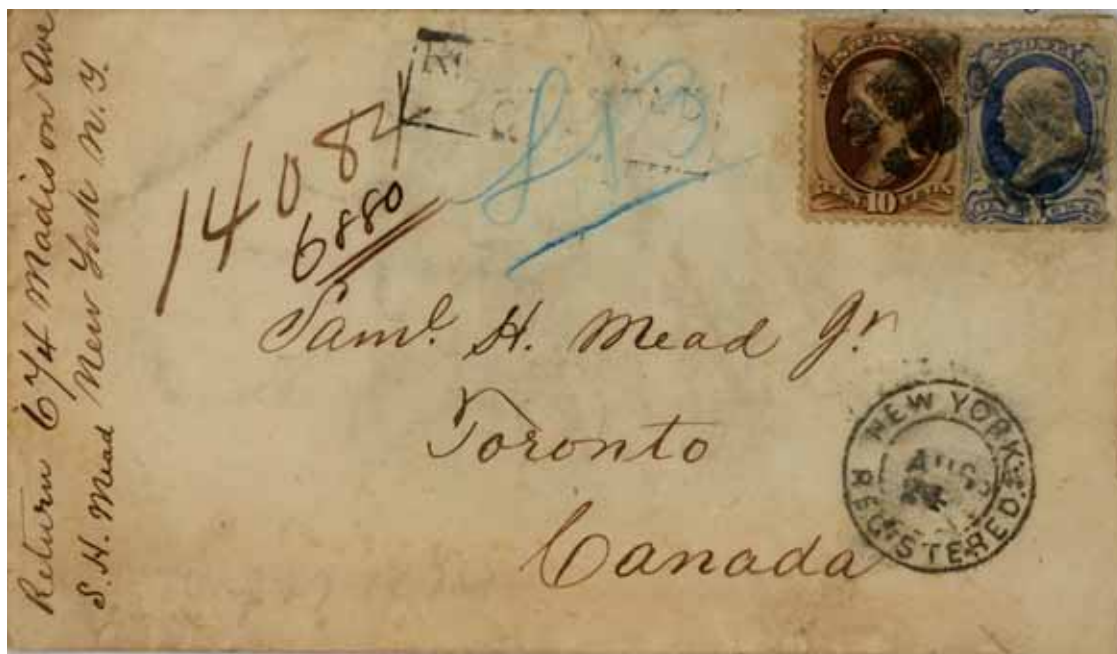 Return 674 Madison Ave
S. H. Mead New York N. Y.
14084
6880
10
Saml. H. Mead Jr.
Toronto
Canada
NEW YORK
AUG
REGISTERED.